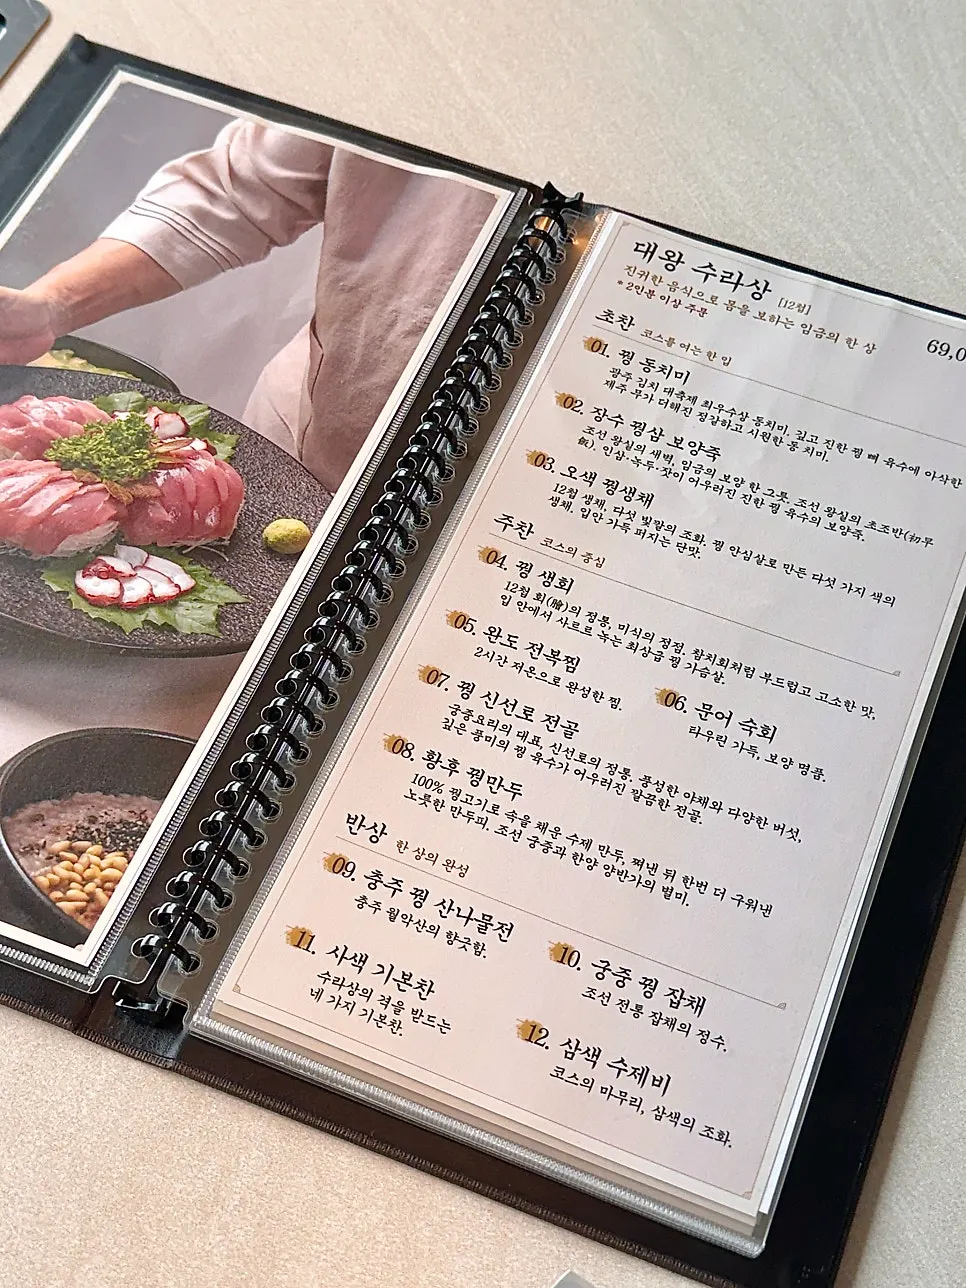 대왕 수라상 [12첩]
진귀한 음식으로 몸을 보하는 임금의 한 상
* 2인분 이상 주문
69,0
초찬 코스를 여는 한 입
01. 꿩 동치미
광주 김치 대축제 최우수상 동치미. 깊고 진한 꿩 뼈 육수에 아삭한
제주 무가 더해진 정갈하고 시원한 동치미.
02. 장수 꿩삼 보양죽
조선 왕실의 새벽, 임금의 보양 한 그릇. 조선 왕실의 초조반(初早
飯). 인삼·녹두·잣이 어우러진 진한 꿩 육수의 보양죽.
03. 오색 꿩생채
12첩 생채, 다섯 빛깔의 조화. 꿩 안심살로 만든 다섯 가지 색의
생채. 입안 가득 퍼지는 단맛.
주찬 코스의 중심
04. 꿩 생회
12첩 회(膾)의 정통, 미식의 정점. 참치회처럼 부드럽고 고소한 맛,
입 안에서 사르르 녹는 최상급 꿩 가슴살.
05. 완도 전복찜
2시간 저온으로 완성한 찜.
06. 문어 숙회
타우린 가득, 보양 명품.
07. 꿩 신선로 전골
궁중요리의 대표, 신선로의 정통. 풍성한 야채와 다양한 버섯,
깊은 풍미의 꿩 육수가 어우러진 깔끔한 전골.
08. 황후 꿩만두
100% 꿩고기로 속을 채운 수제 만두, 쪄낸 뒤 한번 더 구워낸
노릇한 만두피. 조선 궁중과 한양 양반가의 별미.
반상 한 상의 완성
09. 충주 꿩 산나물전
충주 월악산의 향긋함.
10. 궁중 꿩 잡채
조선 전통 잡채의 정수.
11. 사색 기본찬
수라상의 격을 받드는
네 가지 기본찬.
12. 삼색 수제비
코스의 마무리, 삼색의 조화.